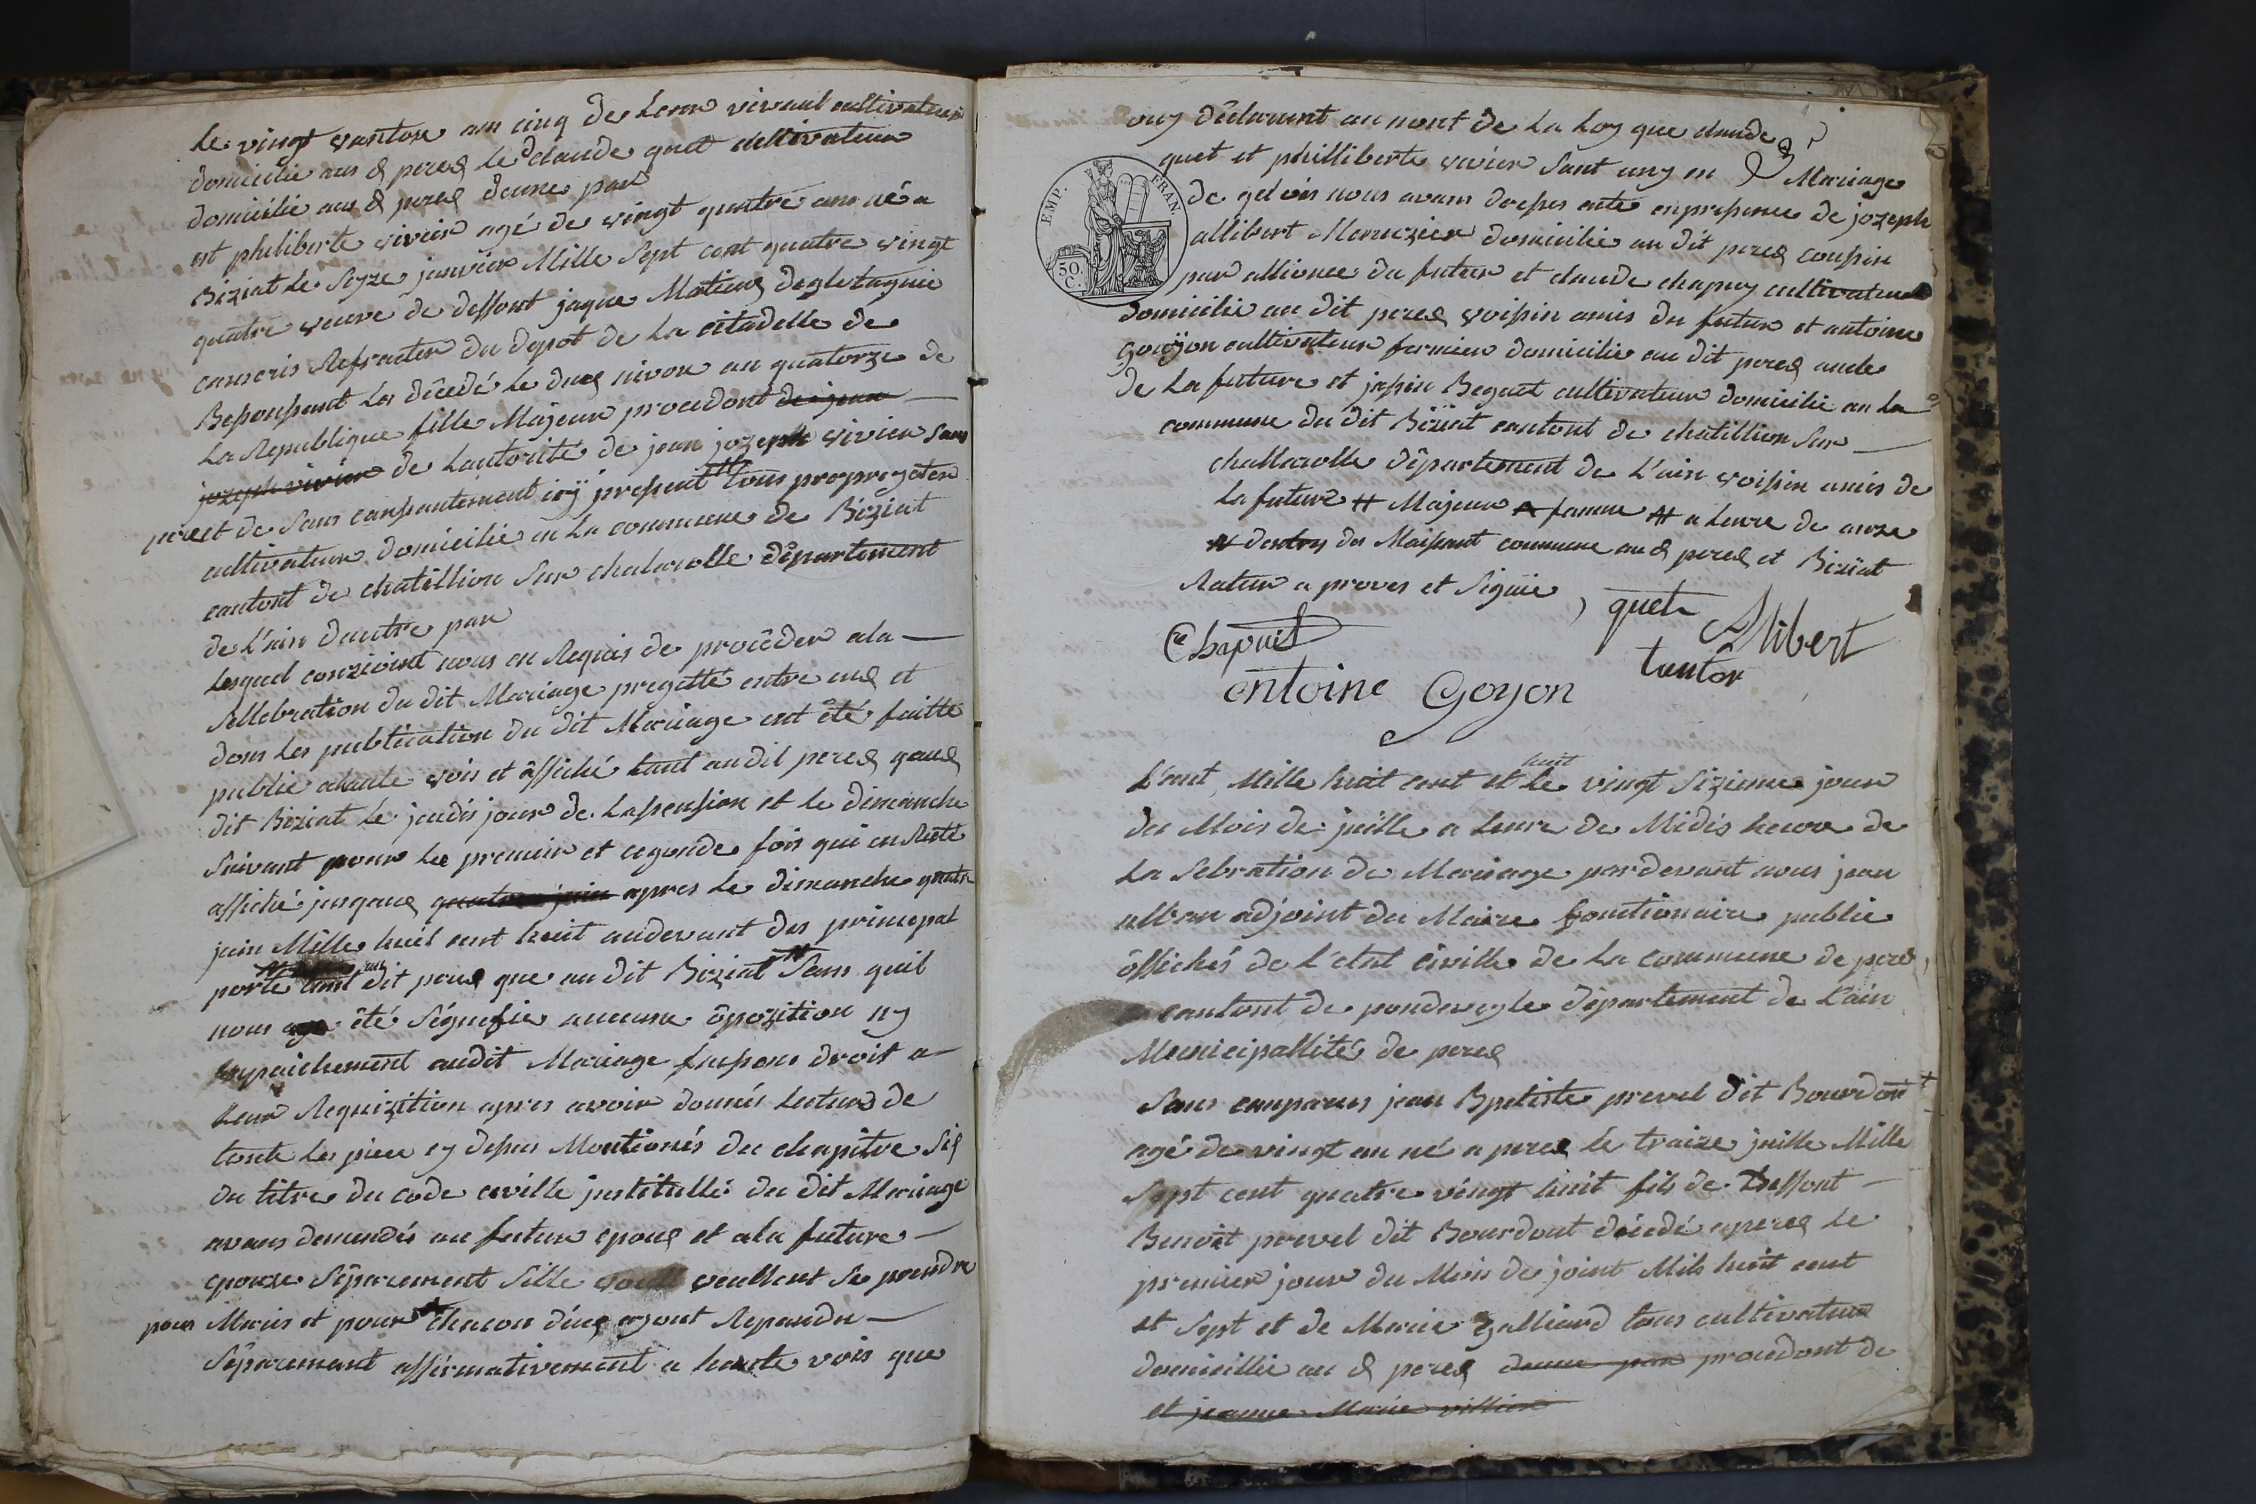 le vingt vantose an cinq de leur vivant cultivateur
domicilie au d perex le d claude quet cultivateur
domicilie au d perex dune par
et philiberte vivier agé de vingt quatre an né a
Biziat le seyze janvier Mille sept cent quatre vingt
quatre veuve de deffont jaque Matieux
conscris Refracter du depot de la citadelle de
la décedé le dux nivose an quatorze de
la Republique fille Majeur procedont de jean
jozeph vivier de lautorité de jean jozeph vivier sans
pere et de sans consantement icÿ present tous propryeter
cultivateur domicilie en la commune de Biziat
cantont de chatillion sur chalarolle département
de l'ain dautre par
lesquel nous on Requis de procêder a la
sellebration du dit Mariage progetté entre eux et
dons les publication du dit Mariage ont êté faitte
publie ahaute vois et âffiché tant au dit perex qaux
dit Biziat le jeudis jour de lassension et le dimanche
suivant pour le premier et cegonde fois qui en Resté
affiché jusqaux quatre juin apres le dimanche quatre
juin Mille huit cent huit audevant des principal
porte tant au dit perex que au dit Biziat sans quil
nous aye êté ségnefie aucune ôpozition ny
enpaichement audit Mariage fesons droit a
leur Requizition apres avoir donnés lecture de
toute les piece cy desus Mentionés du chapitre six
du titre du code civille justitullé du dit Mariage
avons demendés au futur epoux et a la future
epouze séparement sille veullent se prendre
pour Maris et pour chacon deux ayont Repondu
séparemant affirmativement a haute vois que
ouy dêclarent au nont de la loy que claude
quet et philliberte vivier sont uny en Mariage
de qel ois nous avons dresser acte enpresence de jozeph
allibert Menuzier domicilié au dit perex cousin
par allience du futur et claude chapuy cultivateur
domicilie au dit perex voisin amis du futur et antoine
Goyjon cultivateur fermier domicilie au dit perex oncle
de la future et Begaut cultivateur domicilie an la
commune du dit Biziat cantont de chatillion sur
challarolle dêpartement de l'ain voisin amis de
la future # Majeur famme # a leure de onze
des Maisont commune au d perex et Biziat
Rature a prover et signie
quet Alibert
Ce Chapuis
tantor
antoine Goyon
EMP. FRAN.
50. C.
L'ant Mille huit cent et huit le vingt sizieme jour
du Mois de juille a leure de Midis heure de
la sebration de Mariage pardevant nous jean
alban adjoint du Maire fonctionaire public
ôffichés de l'etat civille de la commune de perex
cantont de pondeveyle département de l'ain
Municipallité de perex
sons conparus jean Bpatiste prevel dit Bourdont
agé de vingt an né a perex le traize juille Mille
sept cent quatre vingt huit fils de Deffont
Benoit prevel dit Bourdont décédé aperex le
premier jour du Mois de joint Mils huit cent
et sept et de Marie Galliard tous cultivateur
domicillie au d perex dune par procedont de
et jeanne Marie villier